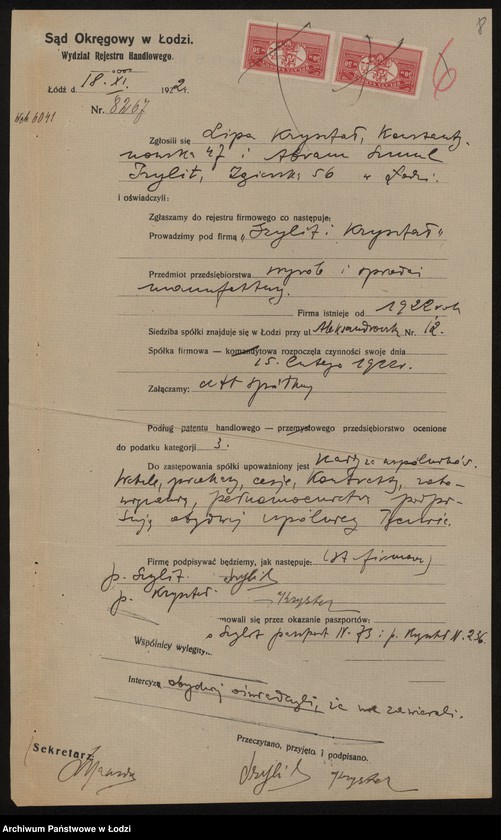 8
Sąd Okręgowy w Łodzi.
Wydział Rejestru Handlowego.
6
Łódź d. 18. XI. 1922 r.
Nr. 8267
Rph 6041
Zgłosili się Lipa Kryształ, Konstanty-
nowska 47 i Abram Szmul
Szylit, Zgierska 56 w Łodzi.
i oświadczyli:
Zgłaszamy do rejestru firmowego co następuje:
Prowadzimy pod firmą „Szylit i Kryształ"
Przedmiot przedsiębiorstwa wyrób i sprzedaż
manufaktury.
Firma istnieje od 1922 rok
Siedziba spółki znajduje się w Łodzi przy ul. Aleksandrowska Nr. 12.
Spółka firmowa — komandytowa rozpoczęła czynności swoje dnia
15. lutego 1922 r.
Załączamy: akt spółki
Podług patentu handlowego — przemysłowego przedsiębiorstwo ocenione
do podatku kategorji 3.
Do zastępowania spółki upoważniony jest każdy ze wspólników.
Weksle, przekazy, cesje, kontrakty, zobo-
wiązania, pełnomocnictwa podpi-
sują obydwaj wspólnicy łącznie.
Firmę podpisywać będziemy, jak następuje: (st. firmowa)
p. Szylit. Szylit
p. Kryształ Kryształ
mowali się przez okazanie paszportów:
p Szylit paszport N. 73 i p. Kryształ N. 236.
Wspólnicy wylegity
Intercyzę obydwaj oświadczyli, że nie zawierali.
Przeczytano, przyjęto i podpisano.
Sekretarz
Szylit Kryształ
Archiwum Państwowe w Łodzi